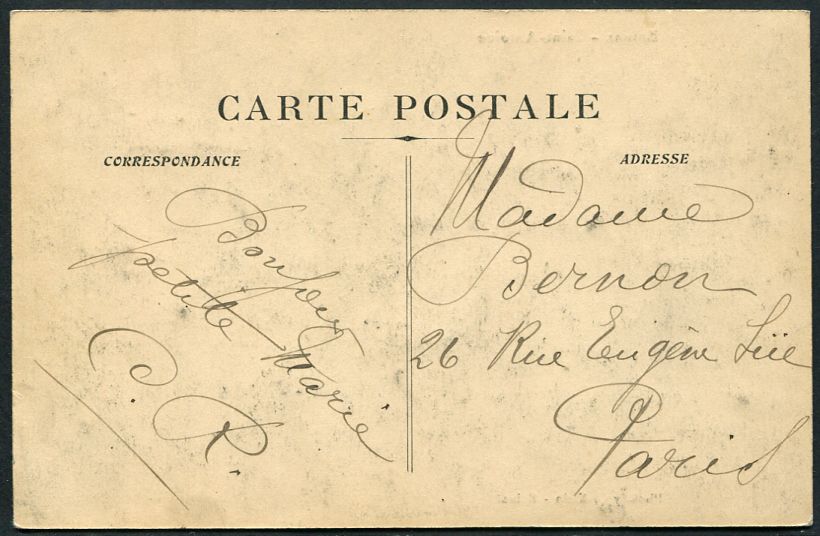 CARTE POSTALE
CORRESPONDANCE
Bonjour
petite Marie
C. R.
ADRESSE
Madame
Bernon
26 Rue Eugène Süe
Paris